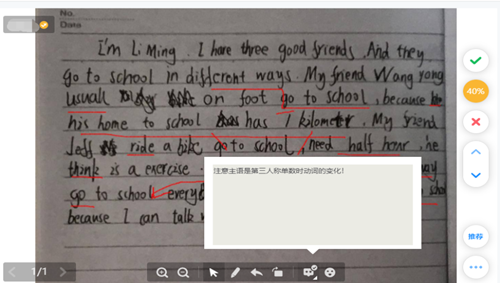 No.
Date
I'm Li Ming. I have three good friends. And they
go to school in different ways. My friend Wang Yong
usuall on foot go to school, because
his home to school has 1 kilometer. My friend
Jeff ride a bike go to school, need half hour, he
think is a exercise.
注意主语是第三人称单数时动词的变化!
go to school every
because I can talk
40%
推荐
1/1